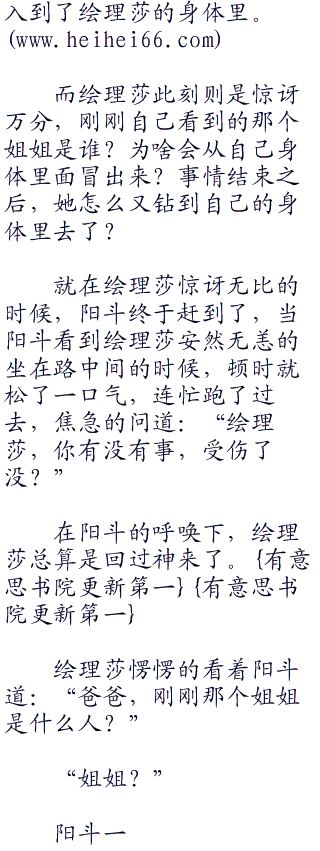 入到了绘理莎的身体里。
(www.heihei66.com)
而绘理莎此刻则是惊讶
万分，刚刚自己看到的那个
姐姐是谁？为啥会从自己身
体里面冒出来？事情结束之
后，她怎么又钻到自己的身
体里去了？
就在绘理莎惊讶无比的
时候，阳斗终于赶到了，当
阳斗看到绘理莎安然无恙的
坐在路中间的时候，顿时就
松了一口气，连忙跑了过
去，焦急的问道：“绘理
莎，你有没有事，受伤了
没？”
在阳斗的呼唤下，绘理
莎总算是回过神来了。{有意
思书院更新第一}{有意思书
院更新第一}
绘理莎愣愣的看着阳斗
道：“爸爸，刚刚那个姐姐
是什么人？”
“姐姐？”
阳斗一